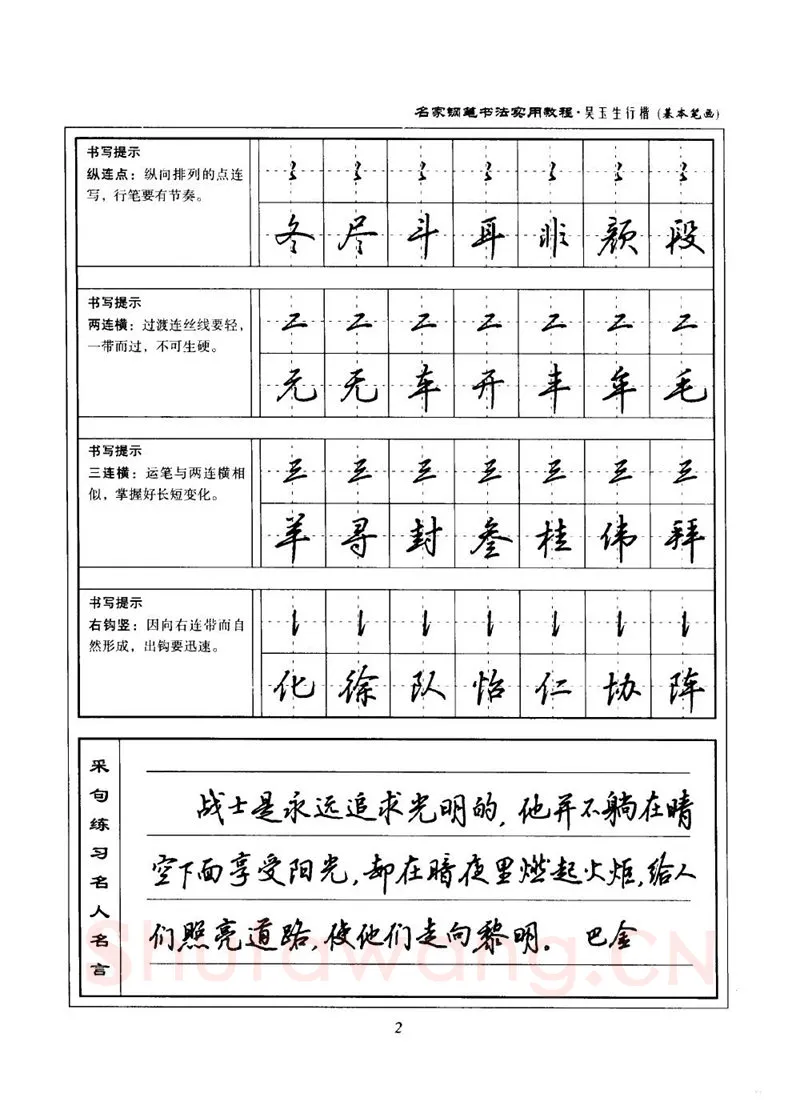 名家钢笔书法实用教程·吴玉生行楷(基本笔画)
书写提示
纵连点：纵向排列的点连
写，行笔要有节奏。
冬尽斗耳非颜段
书写提示
两连横：过渡连丝线要轻，
一带而过，不可生硬。
元无车开丰年毛
书写提示
三连横：运笔与两连横相
似，掌握好长短变化。
羊寻封叁桂伟拜
书写提示
右钩竖：因向右连带而自
然形成，出钩要迅速。
化徐队怡仁协阵
采句练习名人名言
战士是永远追求光明的，他并不躺在晴
空下面享受阳光，却在暗夜里燃起火炬，给人
们照亮道路，使他们走向黎明。 巴金
Shufawang.CN
2